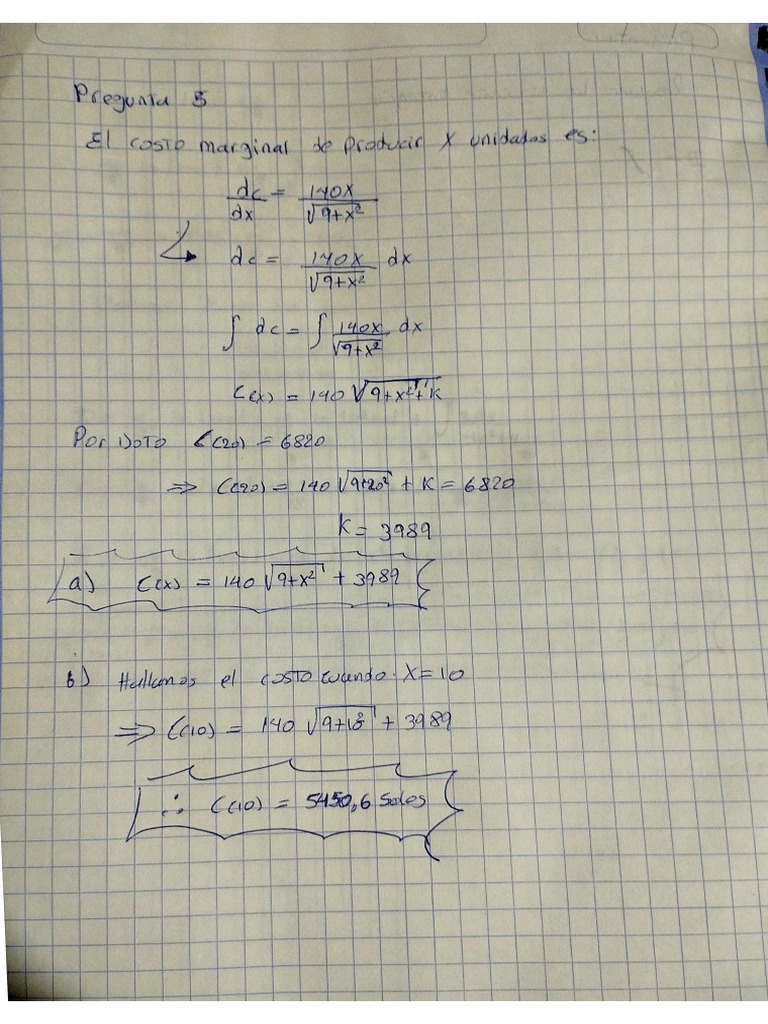 Pregunta 5
El costo marginal de producir x unidades es:
dc/dx = 140x/√(9+x²)
dc = 140x/√(9+x²) dx
∫ dc = ∫ 140x/√(9+x²) dx
C(x) = 140 √(9+x²) + K
Por Dato C(20) = 6820
⇒ C(20) = 140 √(9+20²) + K = 6820
K = 3989
a) C(x) = 140 √(9+x²) + 3989
b) Hallamos el costo cuando x = 10
⇒ C(10) = 140 √(9+10²) + 3989
∴ C(10) = 5450,6 Soles